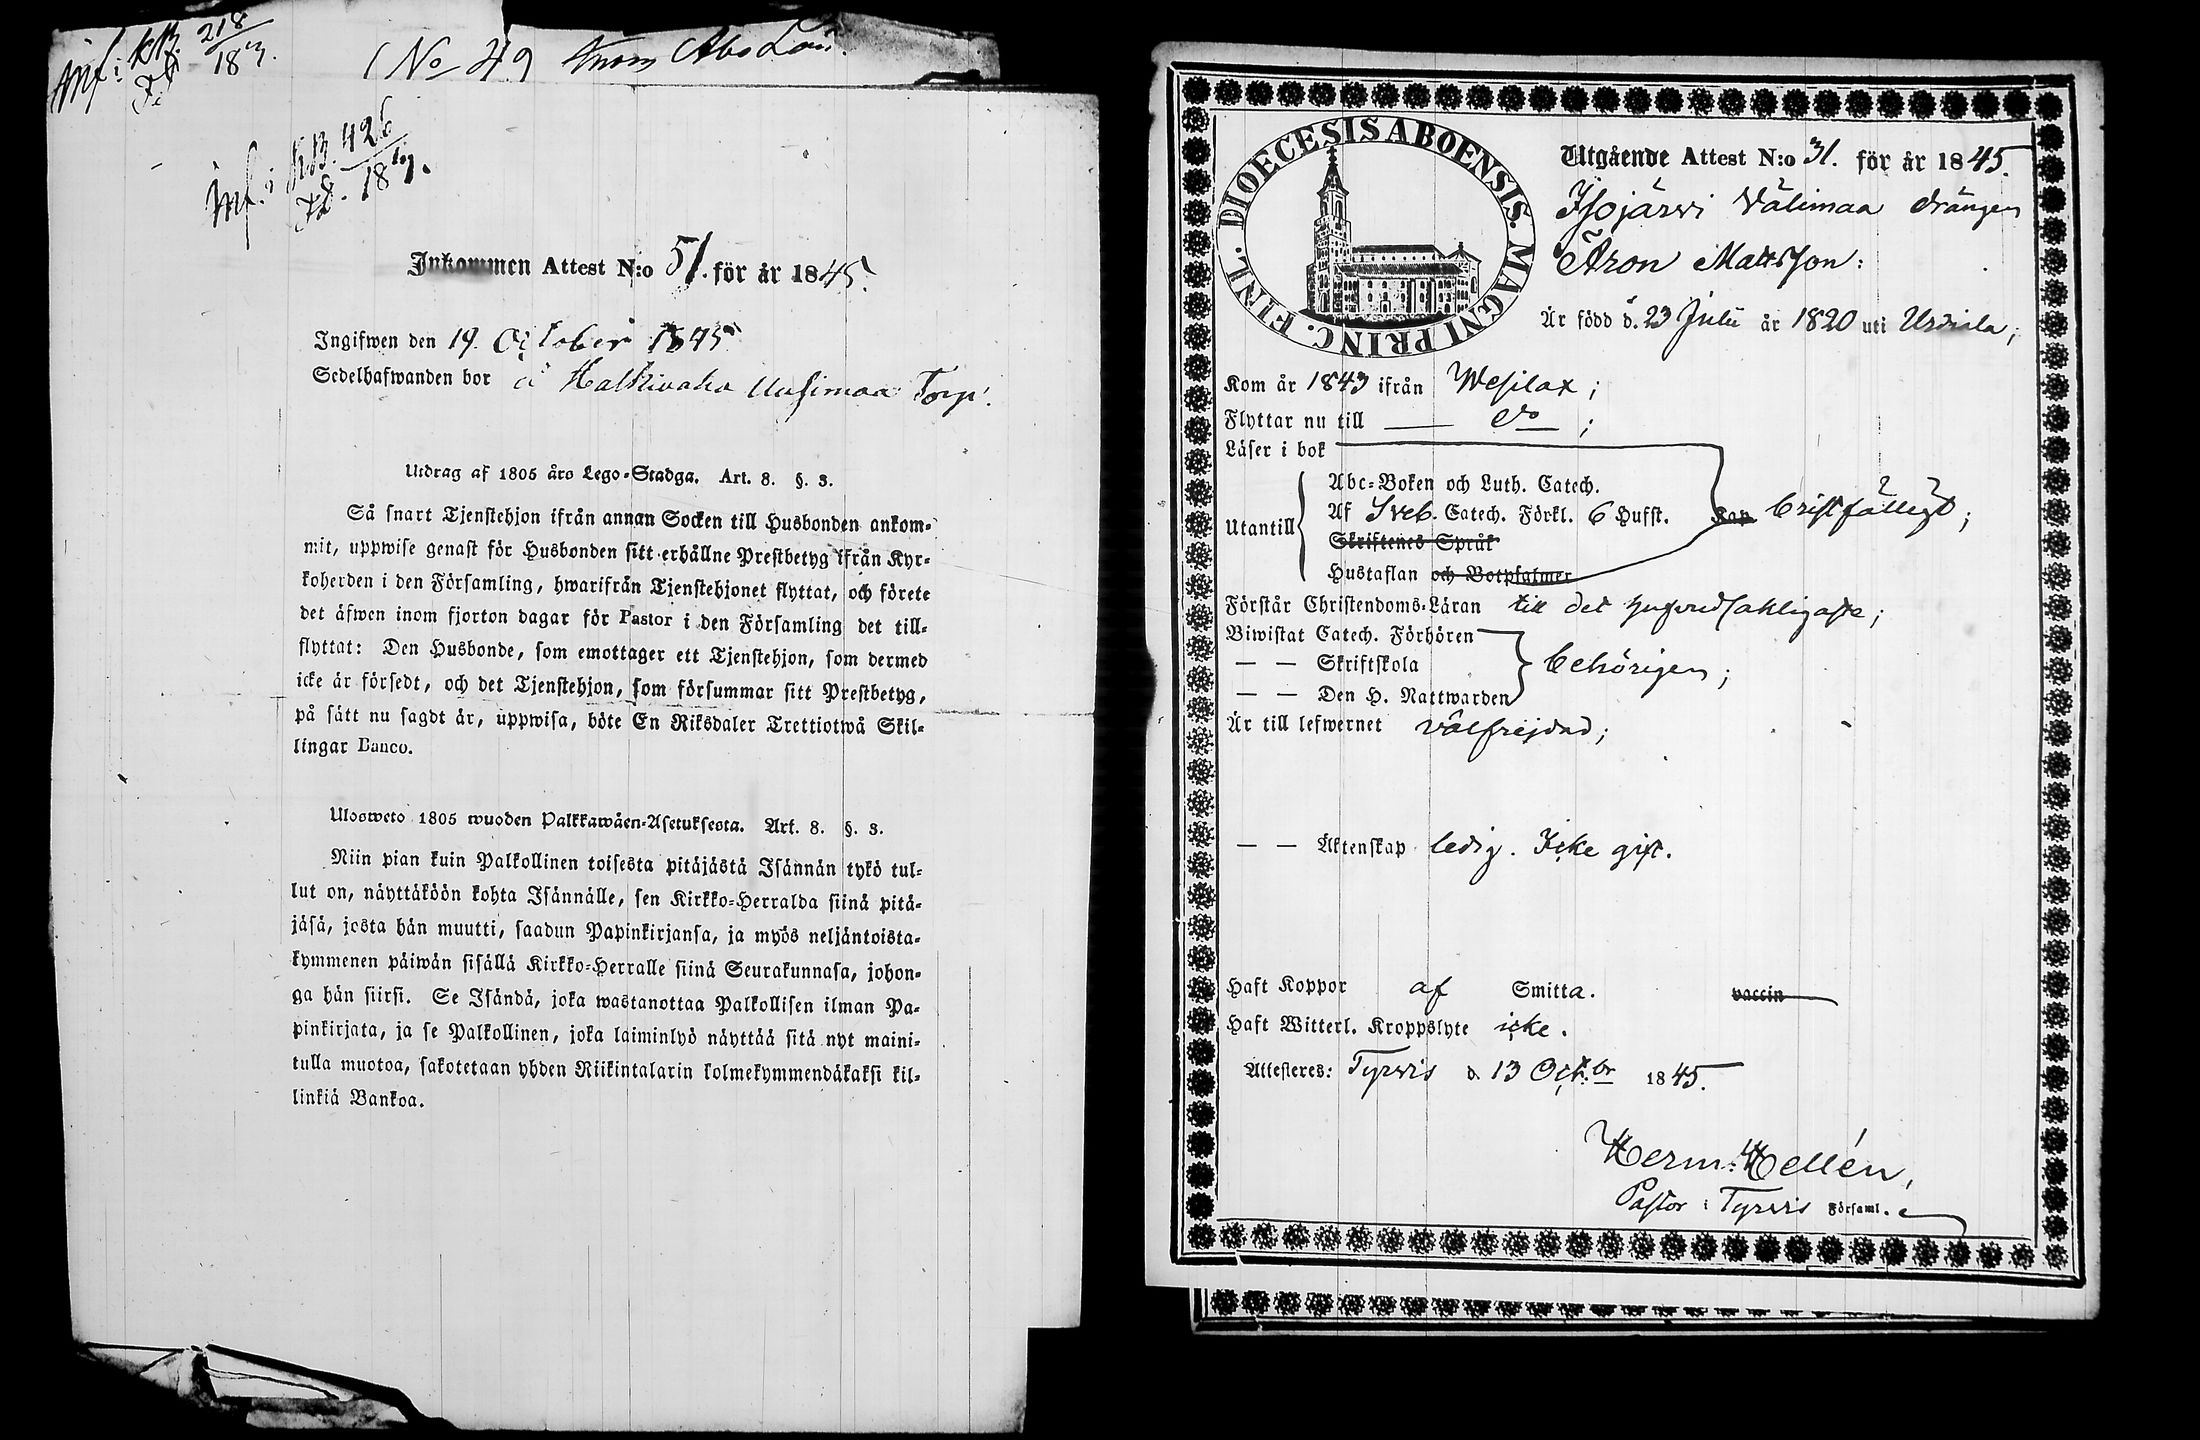 Inf. i KB. 218
Fl 18
(No 49 Inom Åbo Län.
Inf. i KB. 426
Fl. 18
Inkommen Attest N:o 51. för år 1845.
Ingifwen den 19 October 1845
Sedelhafwanden bor å Halkivaha Uusimaa Torp.
Utdrag af 1805 års Lego-Stadga. Art. 8. §. 3.
Så snart Tjenstehjon ifrån annan Socken till Husbonden ankom-
mit, uppwise genast för Husbonden sitt erhållne Prestbetyg ifrån Kyr-
koherden i den Församling, hwarifrån Tjenstehjonet flyttat, och förete
det äfwen inom fjorton dagar för Pastor i den Församling det till-
flyttat: Den Husbonde, som emottager ett Tjenstehjon, som dermed
icke är försedt, och det Tjenstehjon, som försummar sitt Prestbetyg,
på sätt nu sagdt är, uppwisa, böte En Riksdaler Trettiotwå Skil-
lingar Banco.
Ulosweto 1805 wuoden Palkkawäen-Asetuksesta. Art. 8. §. 3.
Niin pian kuin Palkollinen toisesta pitäjästä Isännän tykö tul-
lut on, näyttäköön kohta Isännälle, sen Kirkko-Herralda siinä pitä-
jäsä, josta hän muutti, saadun Papinkirjansa, ja myös neljäntoista-
kymmenen päiwän sisällä Kirkko-Herralle siinä Seurakunnasa, johon-
ga hän siirsi. Se Isändä, joka wastanottaa Palkollisen ilman Pa-
pinkirjata, ja se Palkollinen, joka laiminlyö näyttää sitä nyt maini-
tulla muotoa, sakotetaan yhden Riikintalarin kolmekymmendäkaksi kil-
linkiä Bankoa.
DIOECESIS ABOENSIS. MAGNI PRINC. FINL.
Utgående Attest N:o 31. för år 1845.
Isojärwi Välimaa drängen
Aron Mattsson:
Är född d. 23 Julii år 1820 uti Urdiala;
Kom år 1843 ifrån Wesilax;
Flyttar nu till — do ;
Läser i bok
Abc-Boken och Luth. Catech.
Utantill Af Sveb. Catech. Förkl. 6 Hufst. Kap bristfälligt;
Skriftenes Språk
Hustaflan och Botpsalmer
Förstår Christendoms-Läran till det hufvudsakligaste;
Biwistat Catech. Förhören
— — Skriftskola behörigen;
— — Den H. Nattwarden
Är till lefwernet välfrejdad;
— — Äktenskap ledig. Icke gift.
Haft Koppor af Smitta. vaccin
Haft Witterl. Kroppslyte icke.
Attesteres: Tyrvis d. 13 Oct:br 1845.
Herm: Hellén,
Pastor i Tyrvis Församl.